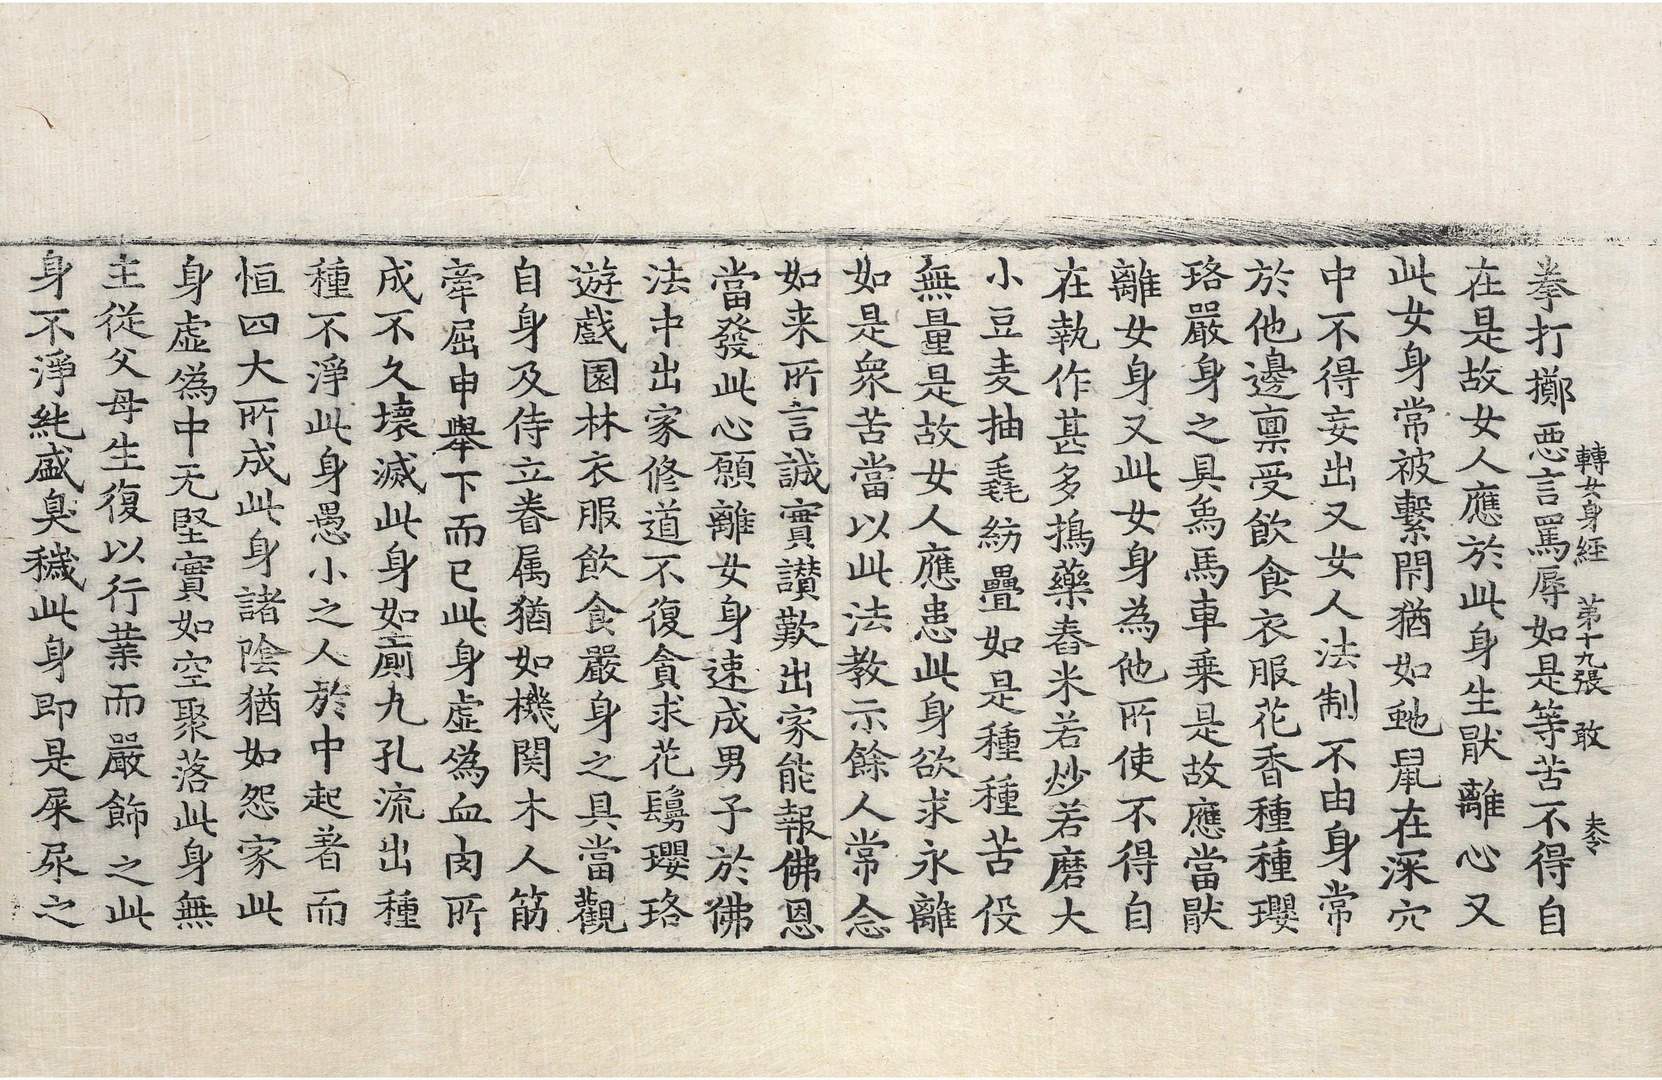 轉女身經 第十九張 敢
拳打擲惡言罵辱如是等苦不得自
在是故女人應於此身生猒離心又
此女身常被繫閇猶如虵鼠在深穴
中不得妄出又女人法制不由身常
於他邊禀受飲食衣服花香種種瓔
珞嚴身之具象馬車乗是故應當猒
離女身又此女身為他所使不得自
在執作甚多擣藥舂米若炒若磨大
小豆麦抽毳紡疊如是種種苦役
無量是故女人應患此身欲求永離
如是衆苦當以此法教示餘人常念
如来所言誠實讃歎出家能報佛恩
當發此心願離女身速成男子於佛
法中出家修道不復貪求花鬘瓔珞
遊戲園林衣服飲食嚴身之具當觀
自身及侍立眷属猶如機関木人筋
牽屈申舉下而已此身虚偽血肉所
成不久壞滅此身如廁九孔流出種
種不淨此身愚小之人於中起著而
恒四大所成此身諸陰猶如怨家此
身虚偽中无堅實如空聚落此身無
主從父母生復以行業而嚴飾之此
身不淨純盛臭穢此身即是屎尿之